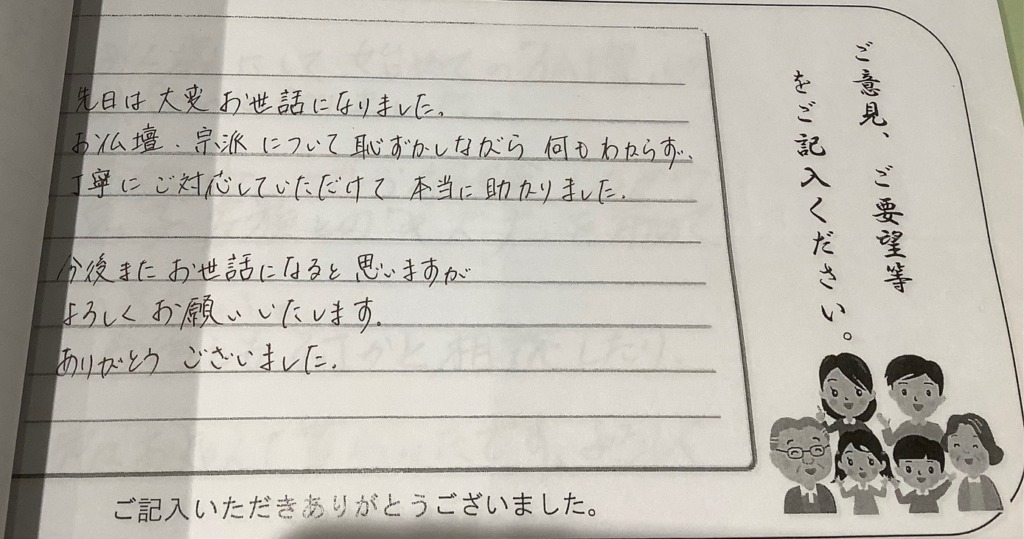 ご意見、ご要望等
をご記入ください。
先日は大変お世話になりました。
お仏壇、宗派について恥ずかしながら何もわからず、
丁寧にご対応していただけて本当に助かりました。
今後またお世話になると思いますが
よろしくお願いいたします。
ありがとうございました。
ご記入いただきありがとうございました。